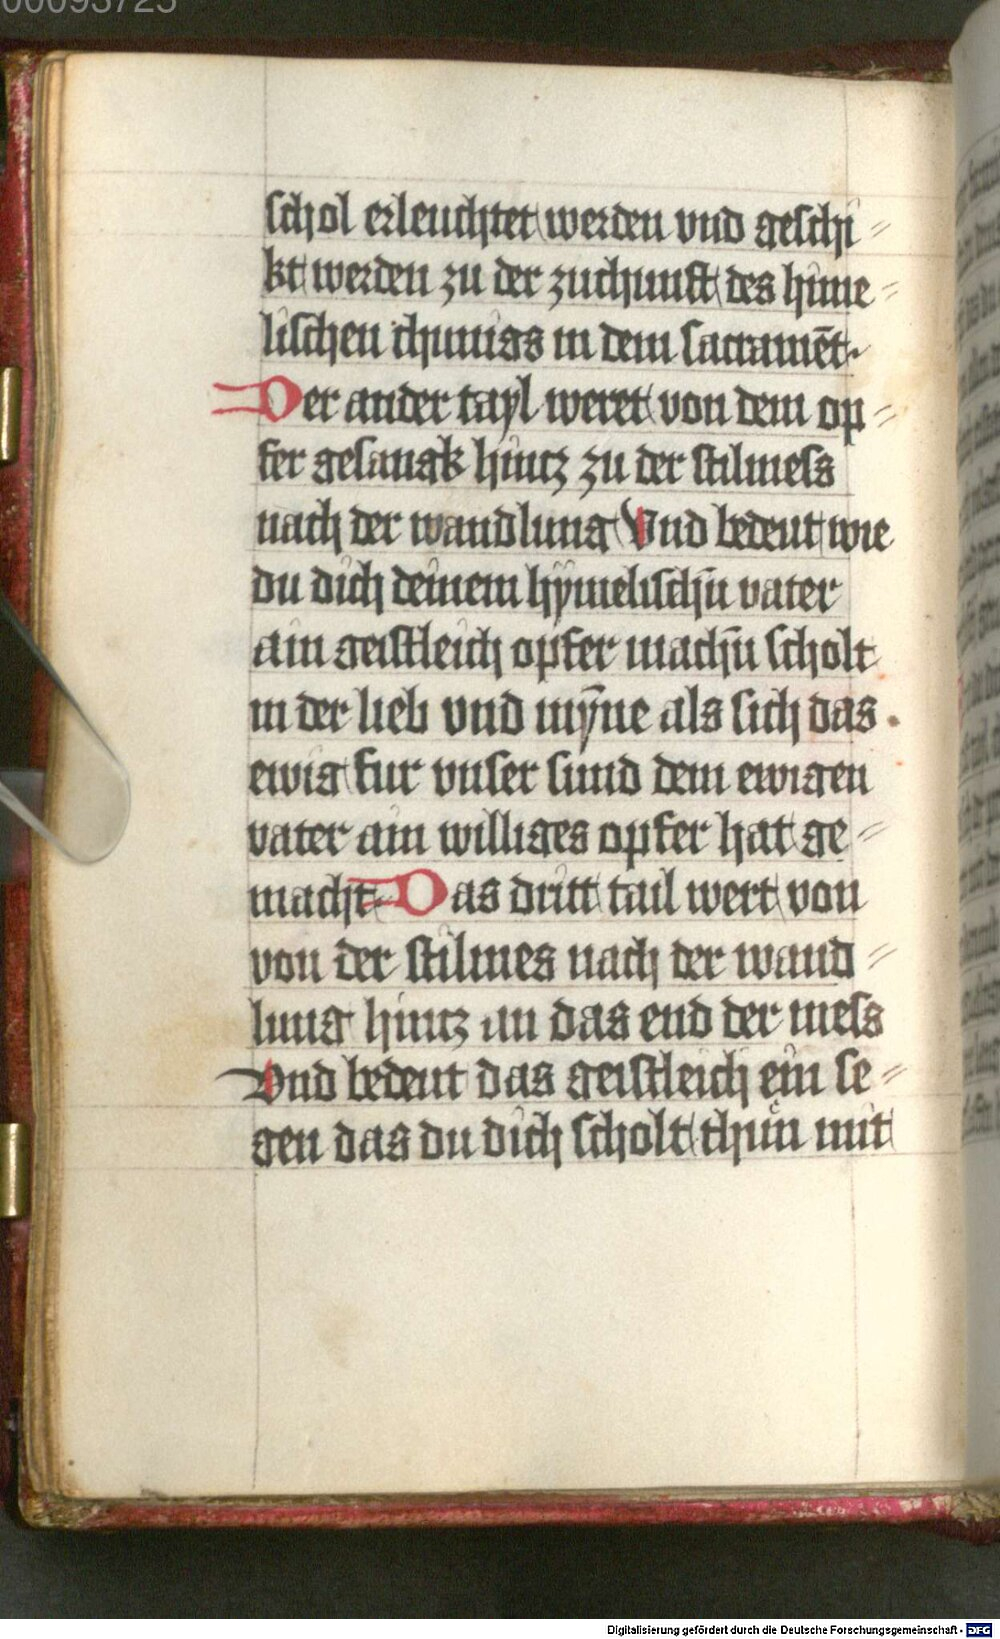 00093725
schol erleuchtet werden vnd geschi⸗
kt werden zu der zuchunfft des hime⸗
lischen chunigs in dem sacramēt·
Der ander tayl weret von dem op⸗
fer gesangk hintz zu der stilmess
nach der wandlung Vnd bedeut wie
du dich deinem hÿmelischn̄ vater
ain geistleich opfer machn̄ scholt
in der lieb vnd mȳne als sich das
ewig fur vnser sund dem ewigen
vater ain williges opfer hat ge⸗
macht· Das dritt tail wert von
von der stilmes nach der wand⸗
lung hintz an das end der mess
Vnd bedeut das geistleich ein se⸗
gen das du dich scholt thuͤn mit
Digitalisierung gefördert durch die Deutsche Forschungsgemeinschaft - DFG